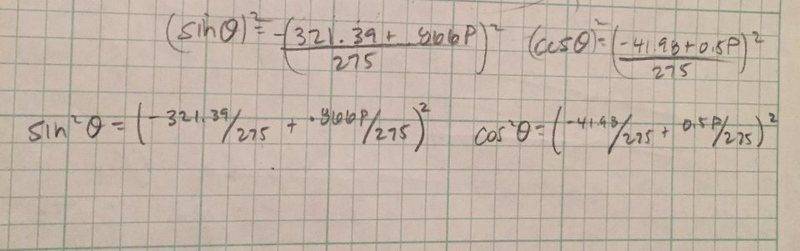 (sinθ)² = -(321.39 + .866P / 275)² (cosθ)² = (-41.98+0.5P / 275)²
sin²θ = (-321.39/275 + .866P/275)² cos²θ = (-41.98/275 + 0.5P/275)²